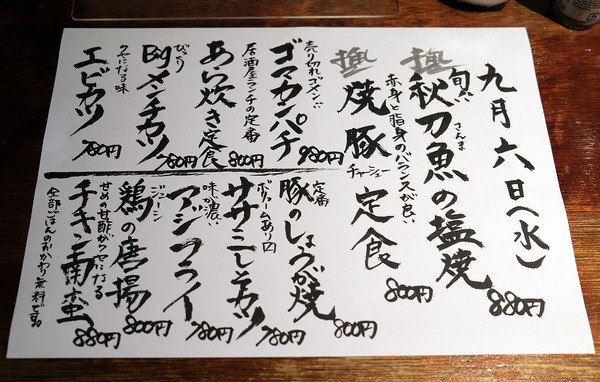 九月六日(水)
旬の
極 秋刀魚の塩焼 880円
さんま
赤身と脂身のバランスが良い
極 焼豚定食 800円
チャーシュー
売り切れゴメン
ゴマカンパチ 980円
居酒屋ランチの定番
あら炊き定食 800円
びっくり
Bigメンチカツ 780円
クセになる味
エビカツ 780円
定番
豚のしょうが焼 800円
ボリュームあり
ササミしそカツ 780円
味が濃い
アジフライ 780円
ジューシー
鶏の唐揚 800円
甘めの甘酢がクセになる
チキン南蛮 880円
全部ごはんのおかわり無料です。